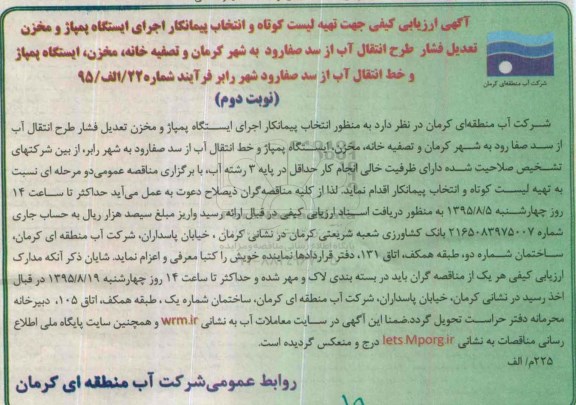 آگهی ارزیابی کیفی جهت تهیه لیست کوتاه و انتخاب پیمانکار اجرای ایستگاه پمپاژ و مخزن
تعدیل فشار طرح انتقال آب از سد صفارود به شهر کرمان و تصفیه خانه، مخزن، ایستگاه پمپاژ
و خط انتقال آب از سد صفارود شهر رابر فرآیند شماره ۲۲/الف/۹۵
(نوبت دوم)
شرکت آب منطقه‌ای کرمان
شرکت آب منطقه‌ای کرمان در نظر دارد به منظور انتخاب پیمانکار اجرای ایستگاه پمپاژ و مخزن تعدیل فشار طرح انتقال آب
از سد صفارود به شهر کرمان و تصفیه خانه، مخزن، ایستگاه پمپاژ و خط انتقال آب از سد صفارود به شهر رابر، از بین شرکتهای
تشخیص صلاحیت شده دارای ظرفیت خالی انجام کار حداقل در پایه ۳ رشته آب، با برگزاری مناقصه عمومی دو مرحله ای نسبت
به تهیه لیست کوتاه و انتخاب پیمانکار اقدام نماید. لذا از کلیه مناقصه‌گران ذیصلاح دعوت به عمل می‌آید حداکثر تا ساعت ۱۴
روز چهارشنبه ۱۳۹۵/۸/۵ به منظور دریافت اسناد ارزیابی کیفی در قبال ارائه رسید واریز مبلغ سیصد هزار ریال به حساب جاری
شماره ۲۱۶۵۰۸۳۹۷۵۰۰۷ بانک کشاورزی شعبه شریعتی کرمان در نشانی کرمان ، خیابان پاسداران، شرکت آب منطقه ای کرمان،
ساختمان شماره دو، طبقه همکف، اتاق ۱۳۱، دفتر قراردادها نماینده خویش را کتبا معرفی و اعزام نمایند. شایان ذکر آنکه مدارک
ارزیابی کیفی هر یک از مناقصه گران باید در بسته بندی لاک و مهر شده و حداکثر تا ساعت ۱۴ روز چهارشنبه ۱۳۹۵/۸/۱۹ در قبال
اخذ رسید در نشانی کرمان، خیابان پاسداران، شرکت آب منطقه ای کرمان، ساختمان شماره یک ، طبقه همکف، اتاق ۱۰۵، دبیرخانه
محرمانه دفتر حراست تحویل گردد.ضمنا این آگهی در سایت معاملات آب به نشانی wrm.ir و همچنین سایت پایگاه ملی اطلاع
رسانی مناقصات به نشانی Iets.Mporg.ir درج و منعکس گردیده است.
۲۲۵م/ الف
روابط عمومی شرکت آب منطقه ای کرمان